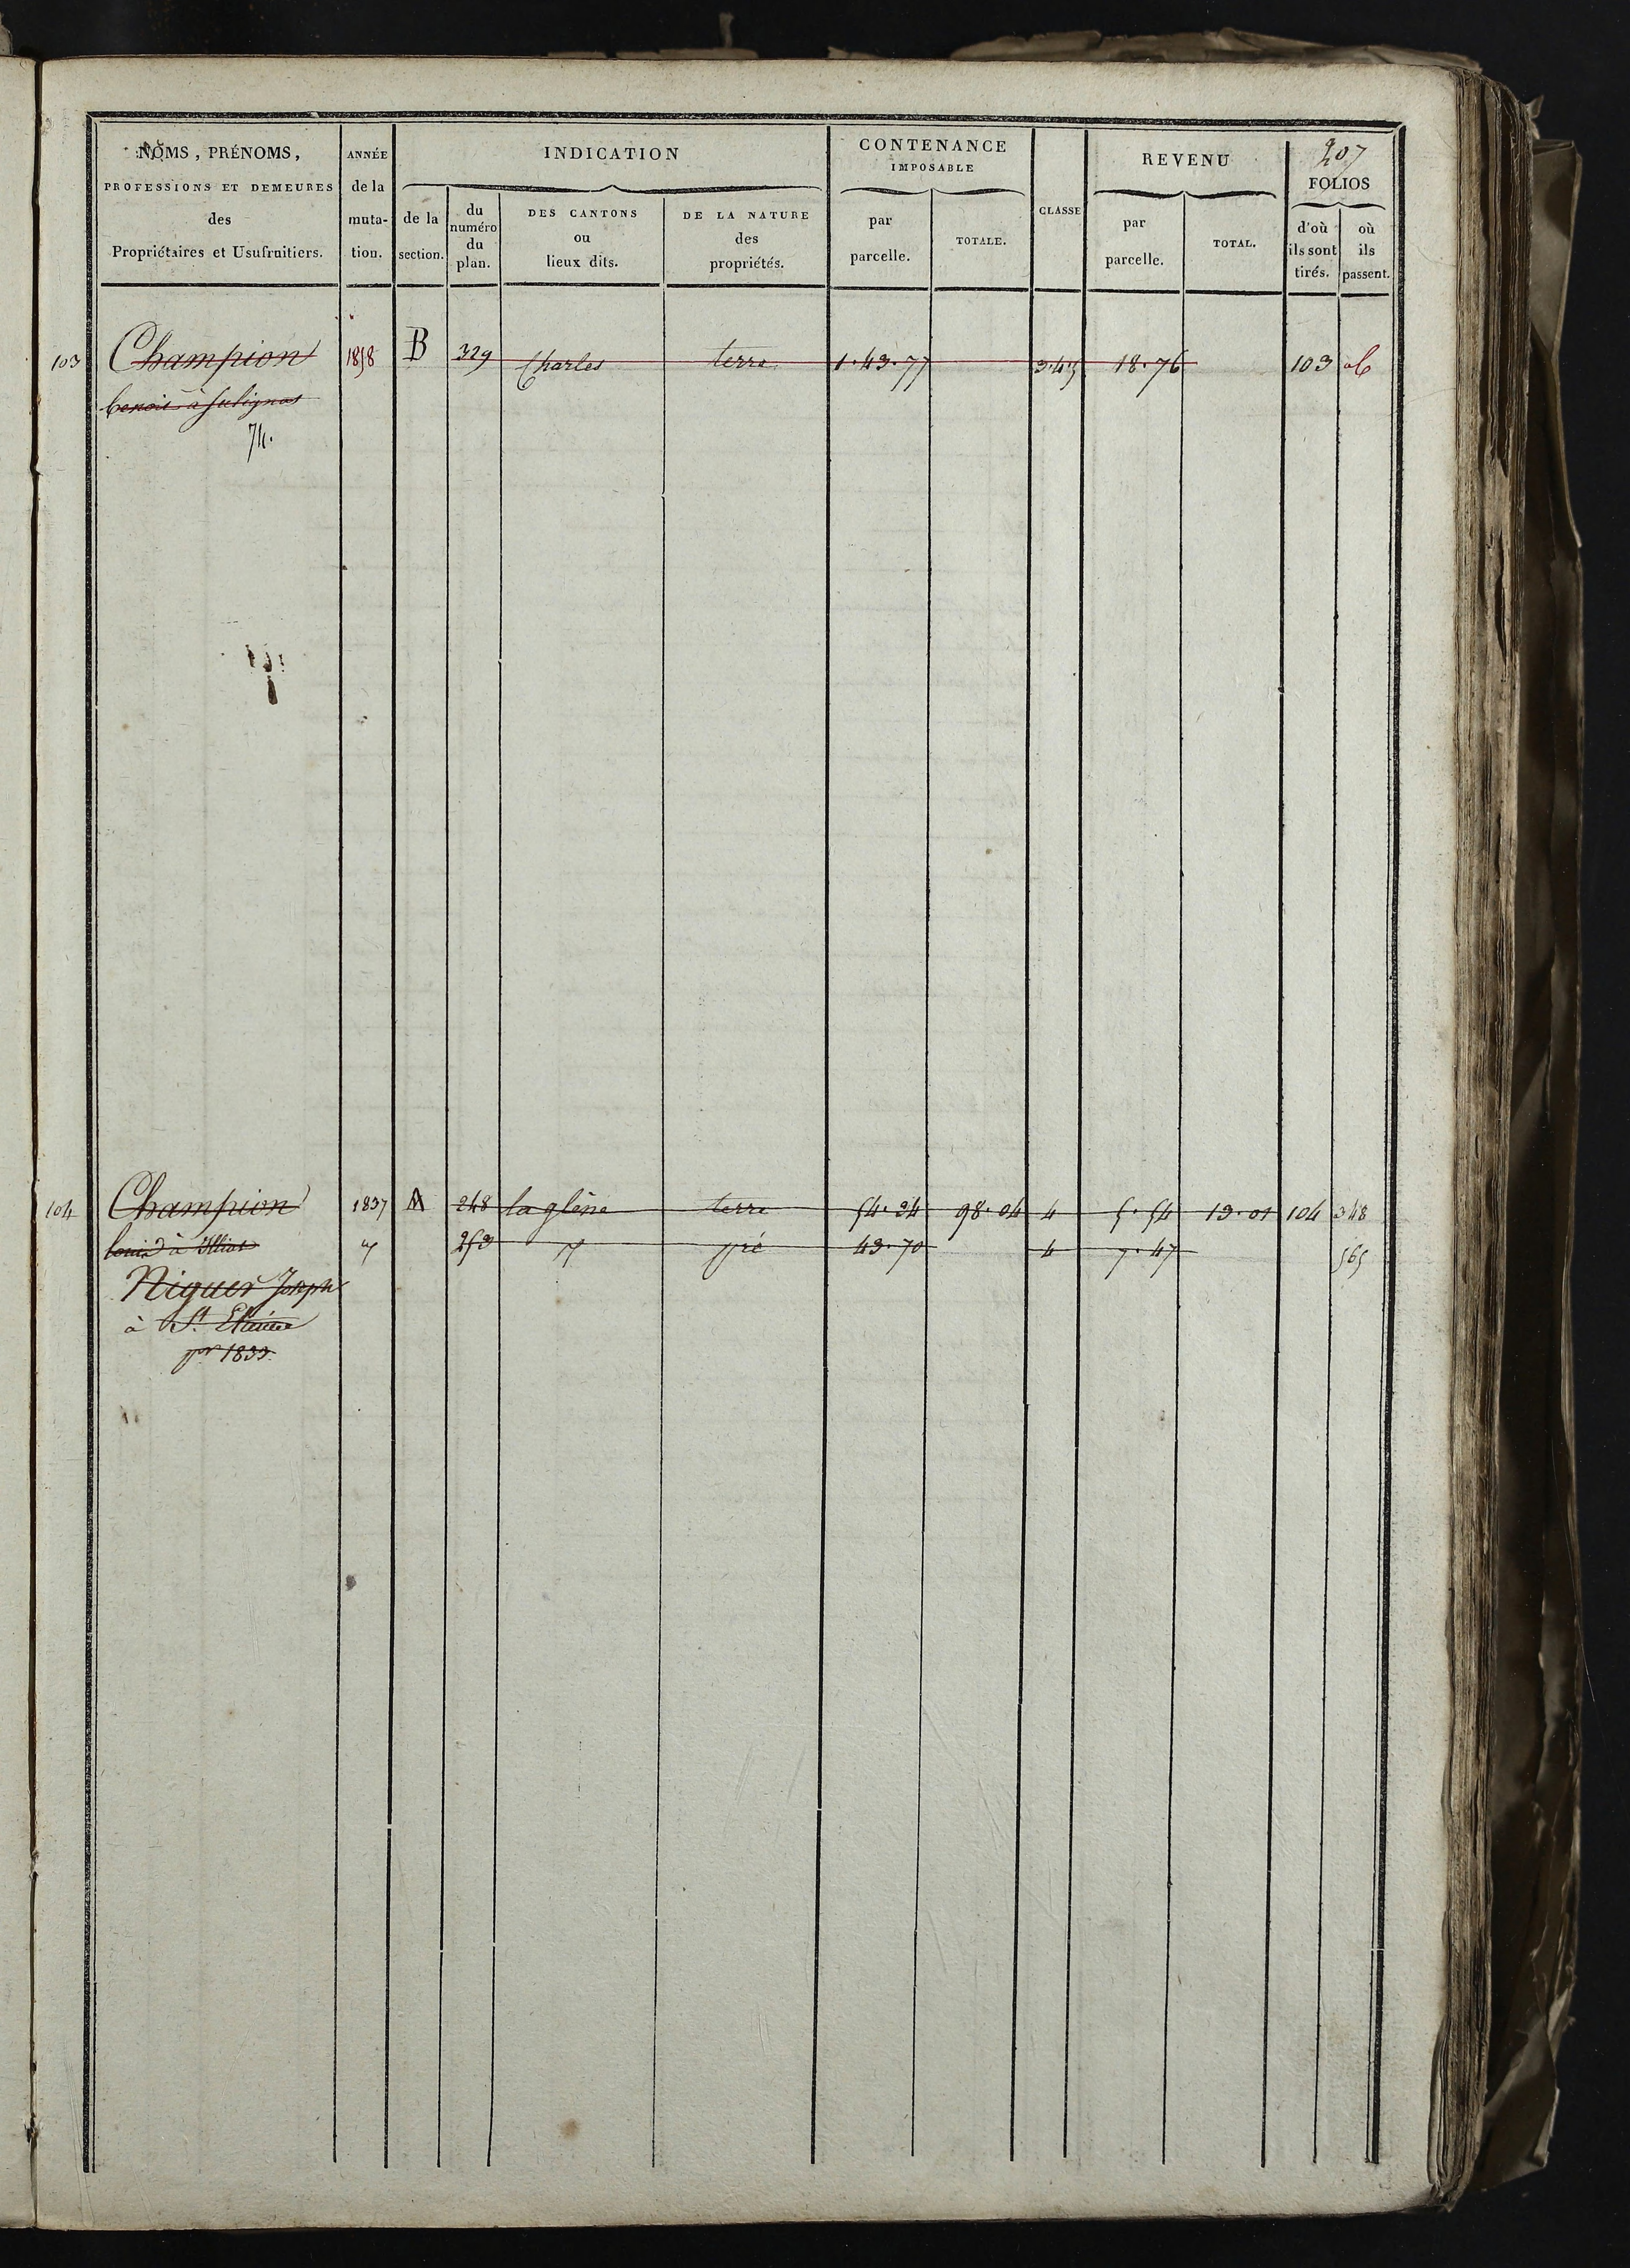 207
NOMS, PRÉNOMS, ANNÉE INDICATION CONTENANCE REVENU FOLIOS
PROFESSIONS ET DEMEURES de la IMPOSABLE
des muta- de la du DES CANTONS DE LA NATURE par CLASSE par d'où où
numéro ou des TOTALE. TOTAL. ils sont ils
Propriétaires et Usufruitiers. tion. section. du lieux dits. propriétés. parcelle. parcelle. tirés. passent.
plan.
103 Champion 1858 B 329 Charles terre 1.43.77 3.4.5 18.76 103
benoit à Sulignat
74.
104 Champion 1837 A 248 la glène terre 54.34 98.04 4 5.54 13.01 104 348
louis à Illiat 253 pré 43.70 4 7.47 565
Niguer Joseph
à St. Etienne
pr 1833.